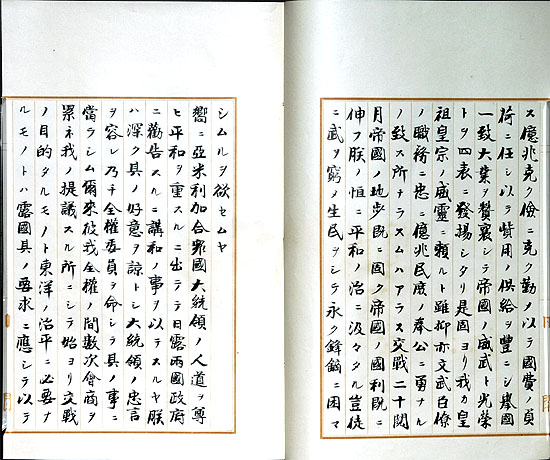 ス億兆克ク儉ニ克ク勤メ以テ國費ノ負
荷ニ任シ以テ費用ノ供給ヲ豐ニシ擧國
一致大業ヲ贊襄シテ帝國ノ威武ト光榮
トヲ四表ニ發揚シタリ是固ヨリ我カ皇
祖皇宗ノ威靈ニ賴ルト雖抑亦文武百僚
ノ職務ニ忠ニ億兆民庶ノ奉公ニ勇ナル
ノ致ス所ナラスムハアラス交戰二十閱
月帝國ノ地步既ニ固ク帝國ノ國利既ニ
伸フ朕ノ恒ニ平和ノ治ニ汲々タル豈徒
ニ武ヲ窮メ生民ヲシテ永ク鋒鏑ニ困マ
シムルヲ欲セムヤ
嚮ニ亞米利加合衆國大統領ノ人道ヲ尊
ヒ平和ヲ重スルニ出テテ日露兩國政府
ニ勸告スルニ講和ノ事ヲ以テスルヤ朕
ハ深ク其ノ好意ヲ諒トシ大統領ノ忠言
ヲ容レ乃チ全權委員ヲ命シテ其ノ事ニ
當ラシム爾來彼我全權ノ間數次會商ヲ
累ネ我ノ提議スル所ニシテ始ヨリ交戰
ノ目的タルモノト東洋ノ治平ニ必要ナ
ルモノトハ露國其ノ要求ニ應シテ以テ